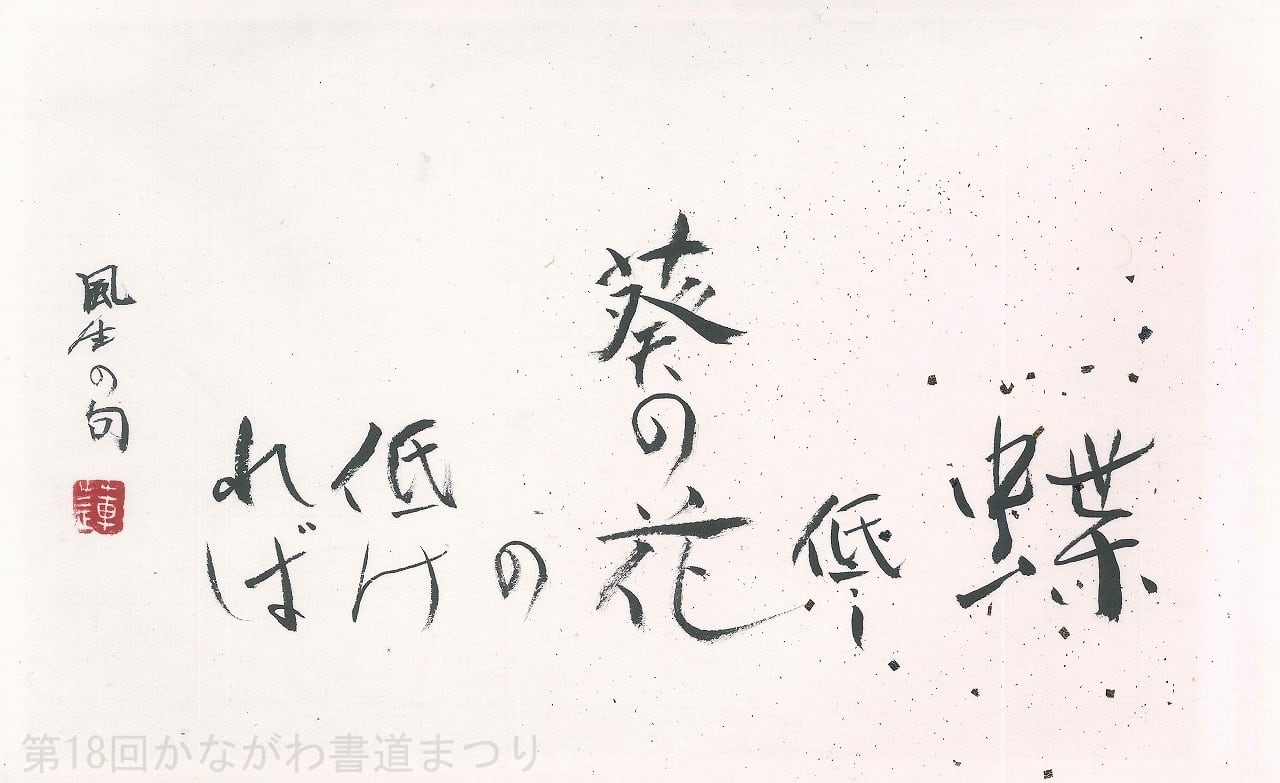 蝶
低し
葵の花
の
低け
れば
風生の句
蓮
第18回かながわ書道まつり